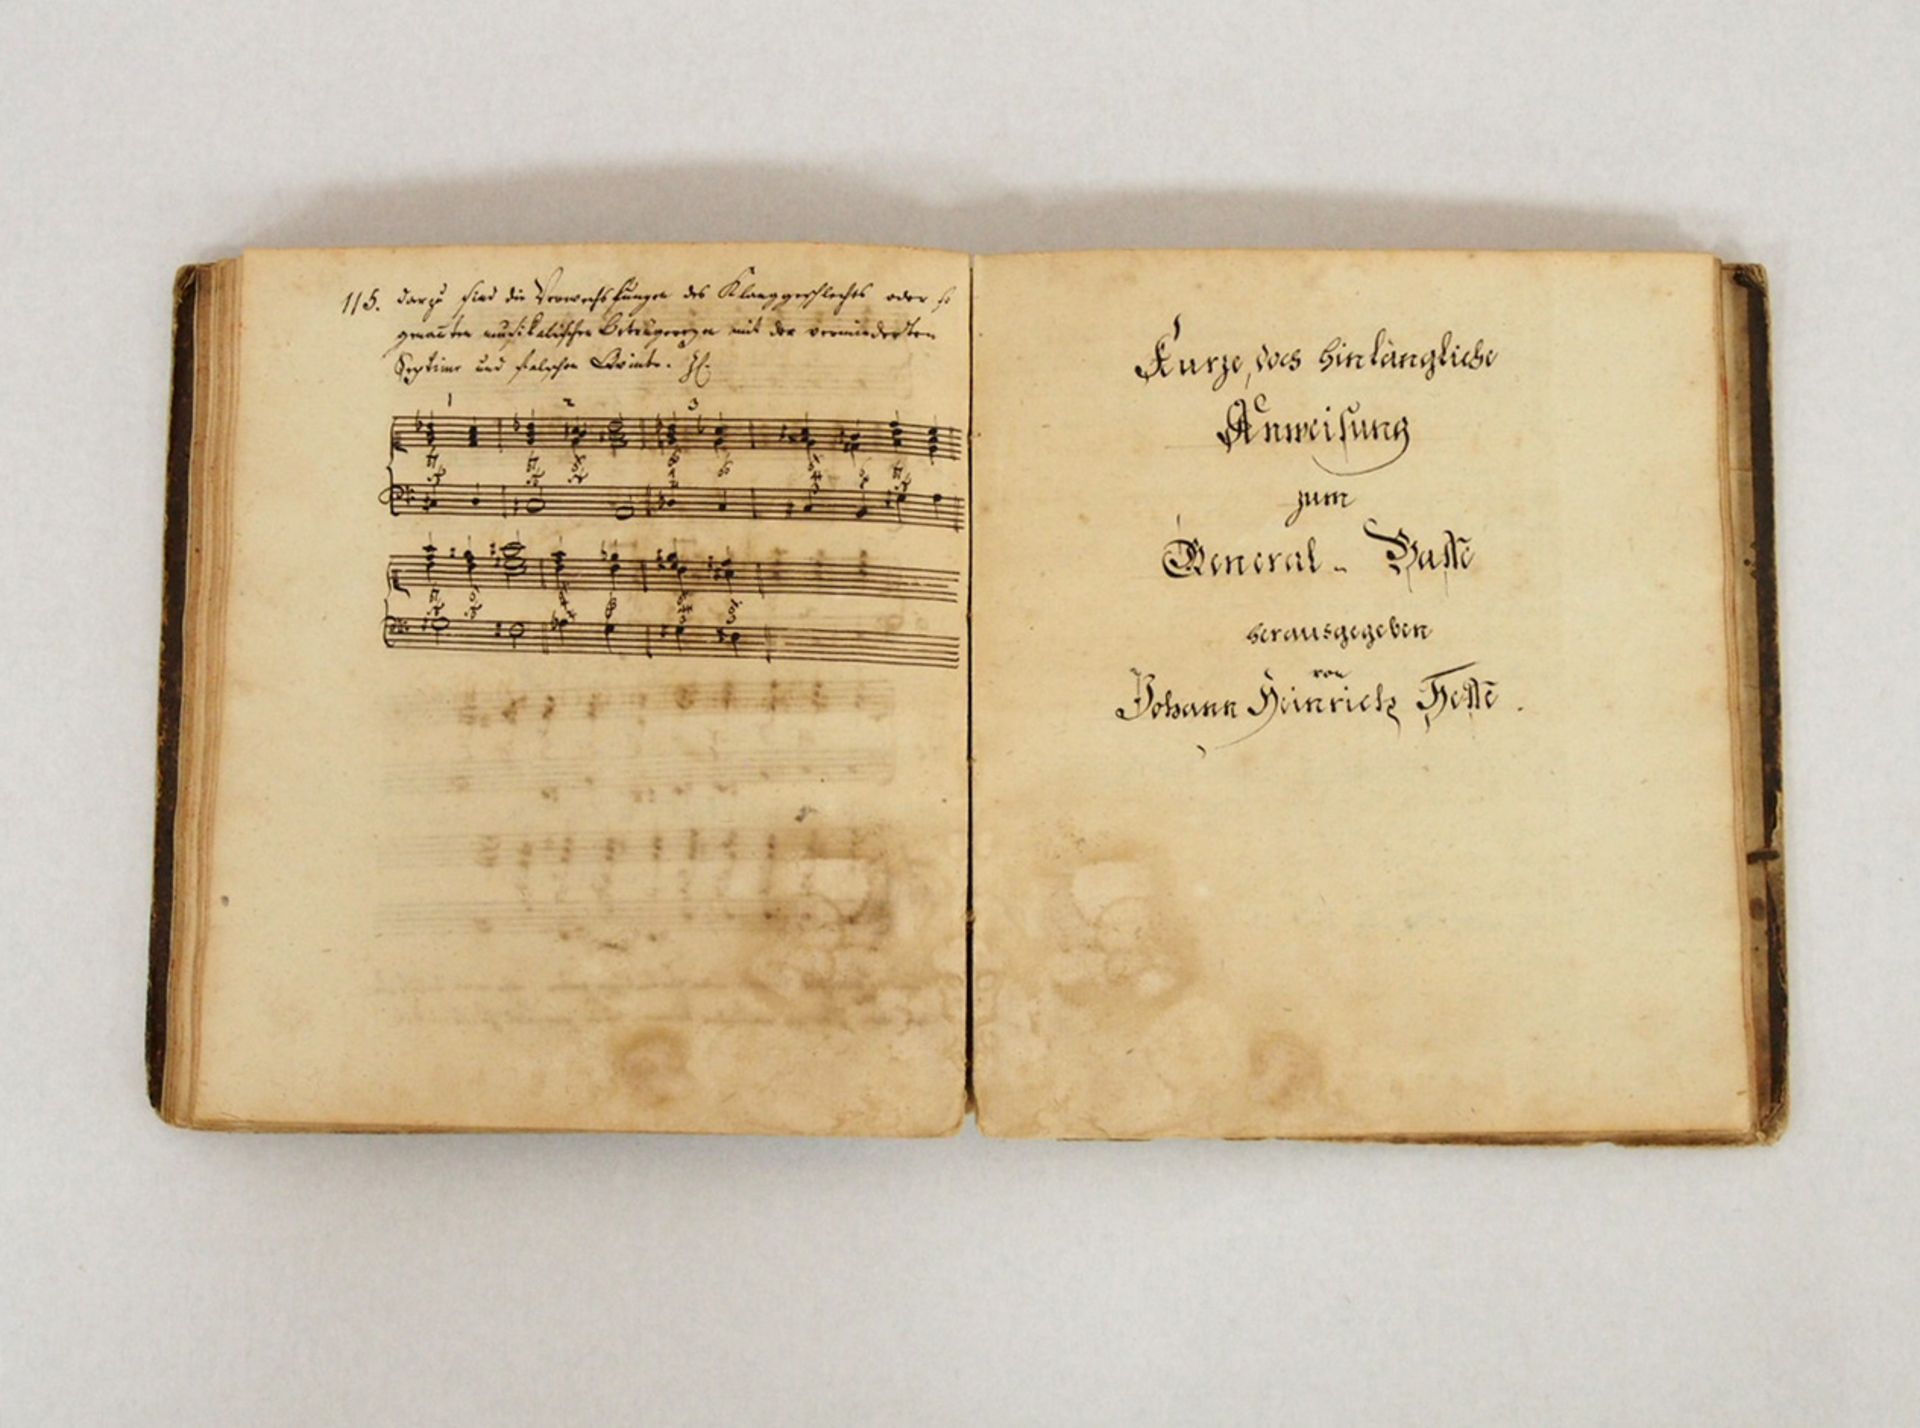 115. darzu sind die Verwechslungen des Klanggeschlechts oder so
genanten musikalischen Betrügereyen mit der verminderten
Septime und falschen Quinte.
1 2 3
Kurze, doch hinlängliche
Anweisung
zum
General-Basse
herausgegeben
von
Johann Heinrich Hesse.